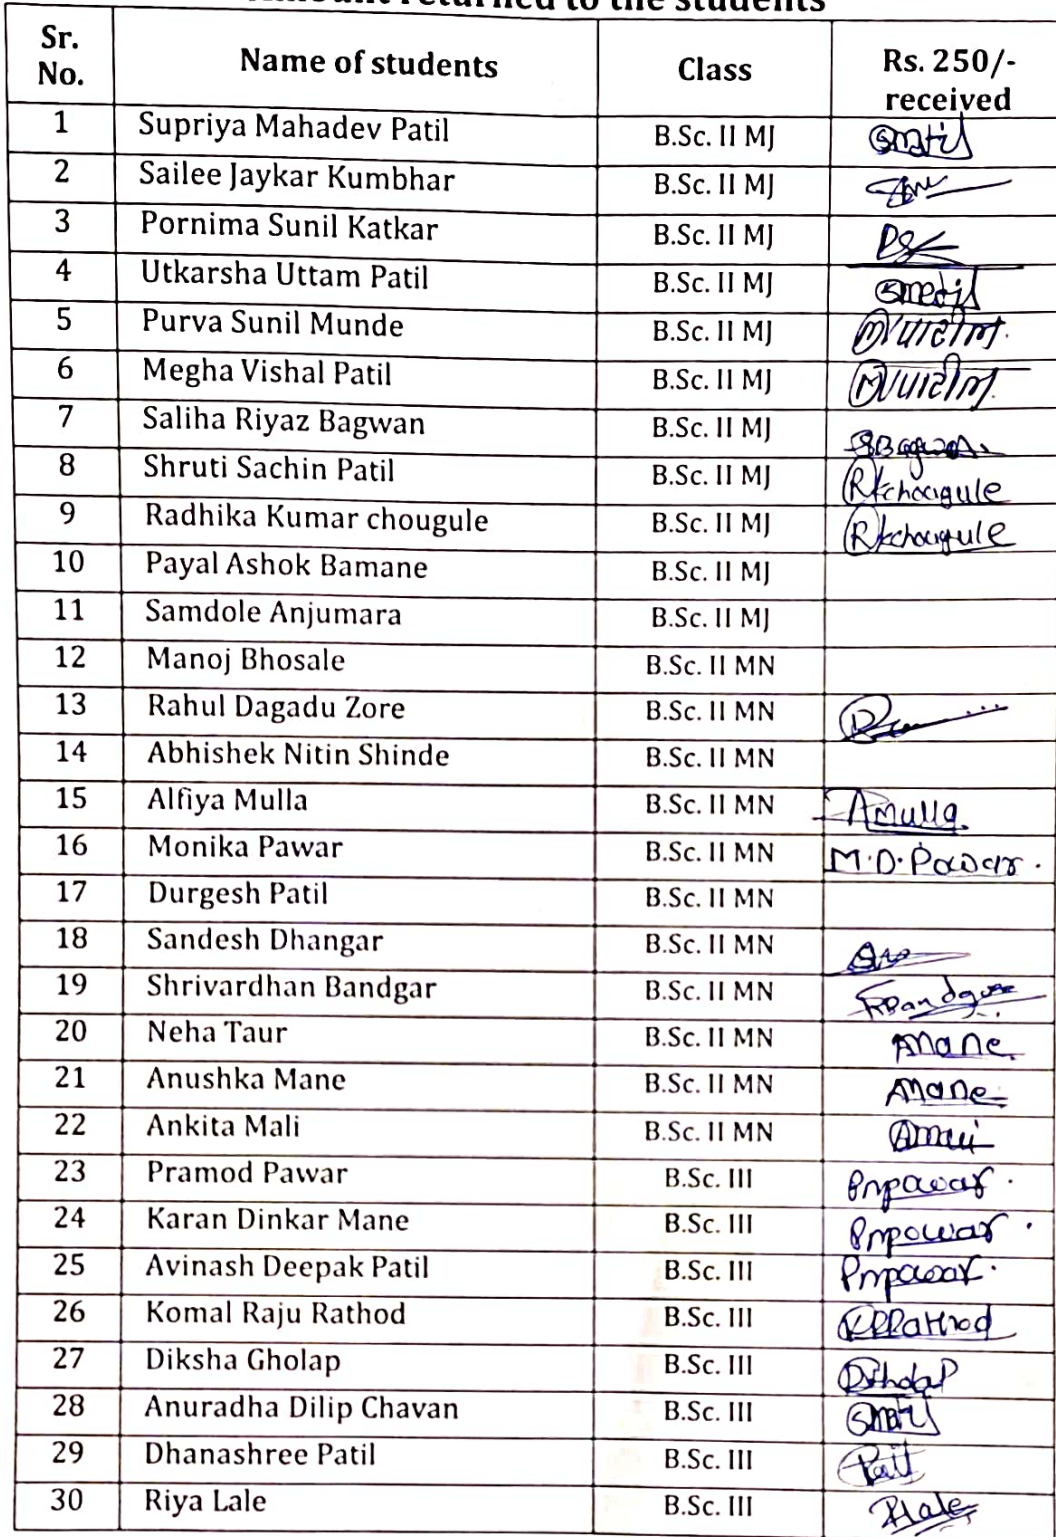 Amount returned to the students
Sr. No. Name of students Class Rs. 250/- received
1 Supriya Mahadev Patil B.Sc. II MJ SMPatil
2 Sailee Jaykar Kumbhar B.Sc. II MJ
3 Pornima Sunil Katkar B.Sc. II MJ
4 Utkarsha Uttam Patil B.Sc. II MJ
5 Purva Sunil Munde B.Sc. II MJ
6 Megha Vishal Patil B.Sc. II MJ
7 Saliha Riyaz Bagwan B.Sc. II MJ SBagwan
8 Shruti Sachin Patil B.Sc. II MJ RKchougule
9 Radhika Kumar chougule B.Sc. II MJ RKchougule
10 Payal Ashok Bamane B.Sc. II MJ
11 Samdole Anjumara B.Sc. II MJ
12 Manoj Bhosale B.Sc. II MN
13 Rahul Dagadu Zore B.Sc. II MN
14 Abhishek Nitin Shinde B.Sc. II MN
15 Alfiya Mulla B.Sc. II MN AMulla
16 Monika Pawar B.Sc. II MN M.D.Pawar.
17 Durgesh Patil B.Sc. II MN
18 Sandesh Dhangar B.Sc. II MN
19 Shrivardhan Bandgar B.Sc. II MN
20 Neha Taur B.Sc. II MN AMane
21 Anushka Mane B.Sc. II MN AMane
22 Ankita Mali B.Sc. II MN AMali
23 Pramod Pawar B.Sc. III PMPawar.
24 Karan Dinkar Mane B.Sc. III PMPawar.
25 Avinash Deepak Patil B.Sc. III PMPawar.
26 Komal Raju Rathod B.Sc. III KRRathod
27 Diksha Gholap B.Sc. III DGholap
28 Anuradha Dilip Chavan B.Sc. III SMPatil
29 Dhanashree Patil B.Sc. III
30 Riya Lale B.Sc. III RLale